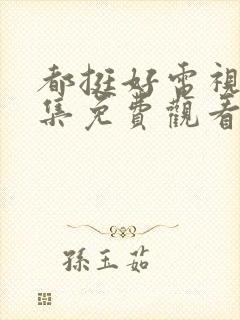 都挺好電視
集免費觀看
孫玉茹